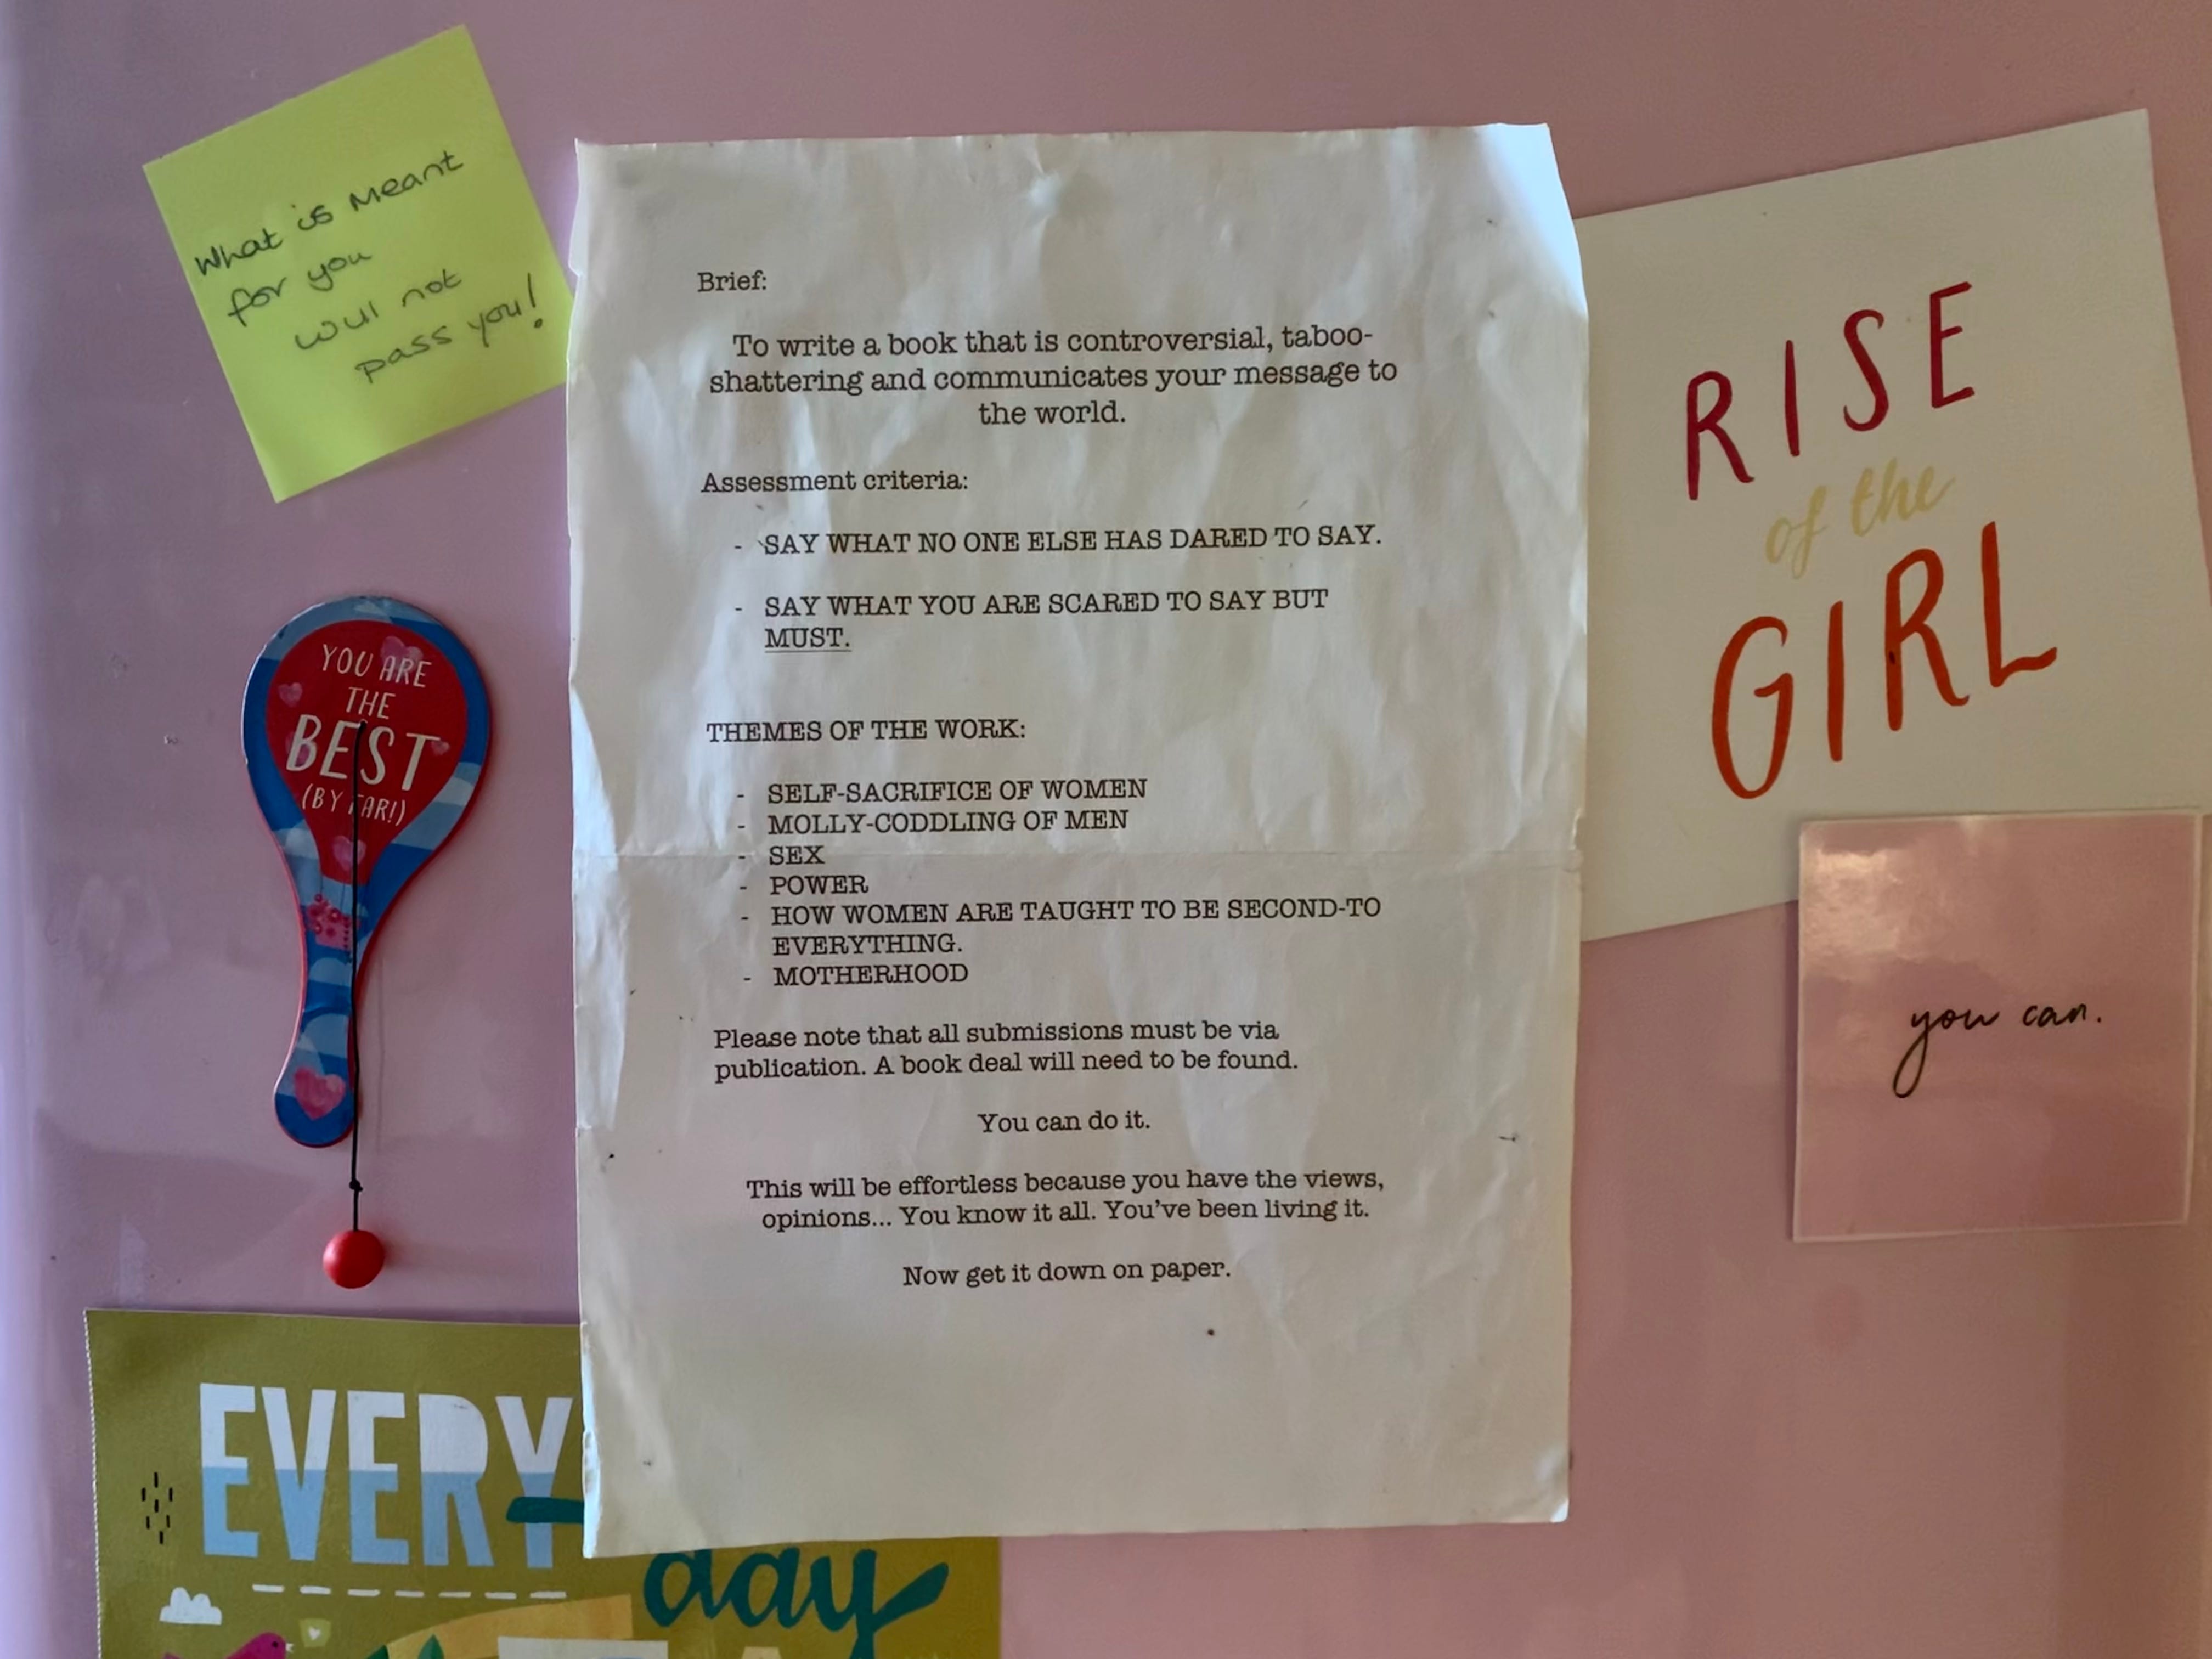 What is meant
for you
will not
pass you!
Brief:
To write a book that is controversial, taboo-
shattering and communicates your message to
the world.
Assessment criteria:
- SAY WHAT NO ONE ELSE HAS DARED TO SAY.
- SAY WHAT YOU ARE SCARED TO SAY BUT
MUST.
THEMES OF THE WORK:
- SELF-SACRIFICE OF WOMEN
- MOLLY-CODDLING OF MEN
- SEX
- POWER
- HOW WOMEN ARE TAUGHT TO BE SECOND-TO
EVERYTHING.
- MOTHERHOOD
Please note that all submissions must be via
publication. A book deal will need to be found.
You can do it.
This will be effortless because you have the views,
opinions... You know it all. You've been living it.
Now get it down on paper.
RISE
of the
GIRL
you can.
YOU ARE
THE
BEST
(BY FAR!)
EVERY
day